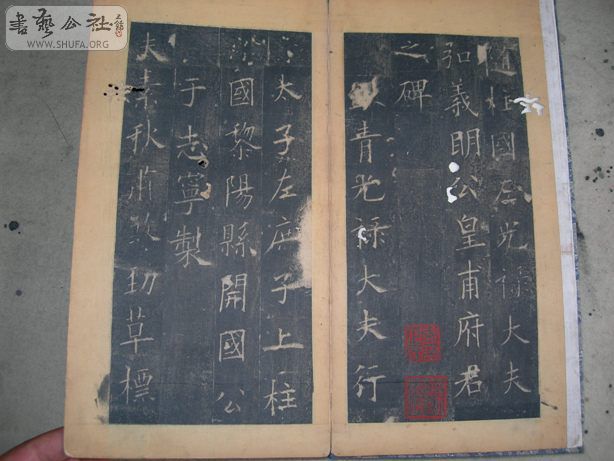 書藝公社
WWW.SHUFA.ORG
隨柱國左光祿大夫
弘義明公皇甫府君
之碑
青光祿大夫行
太子左庶子上柱
國黎陽縣開國公
于志寧製
夫素秋肅煞勁草標